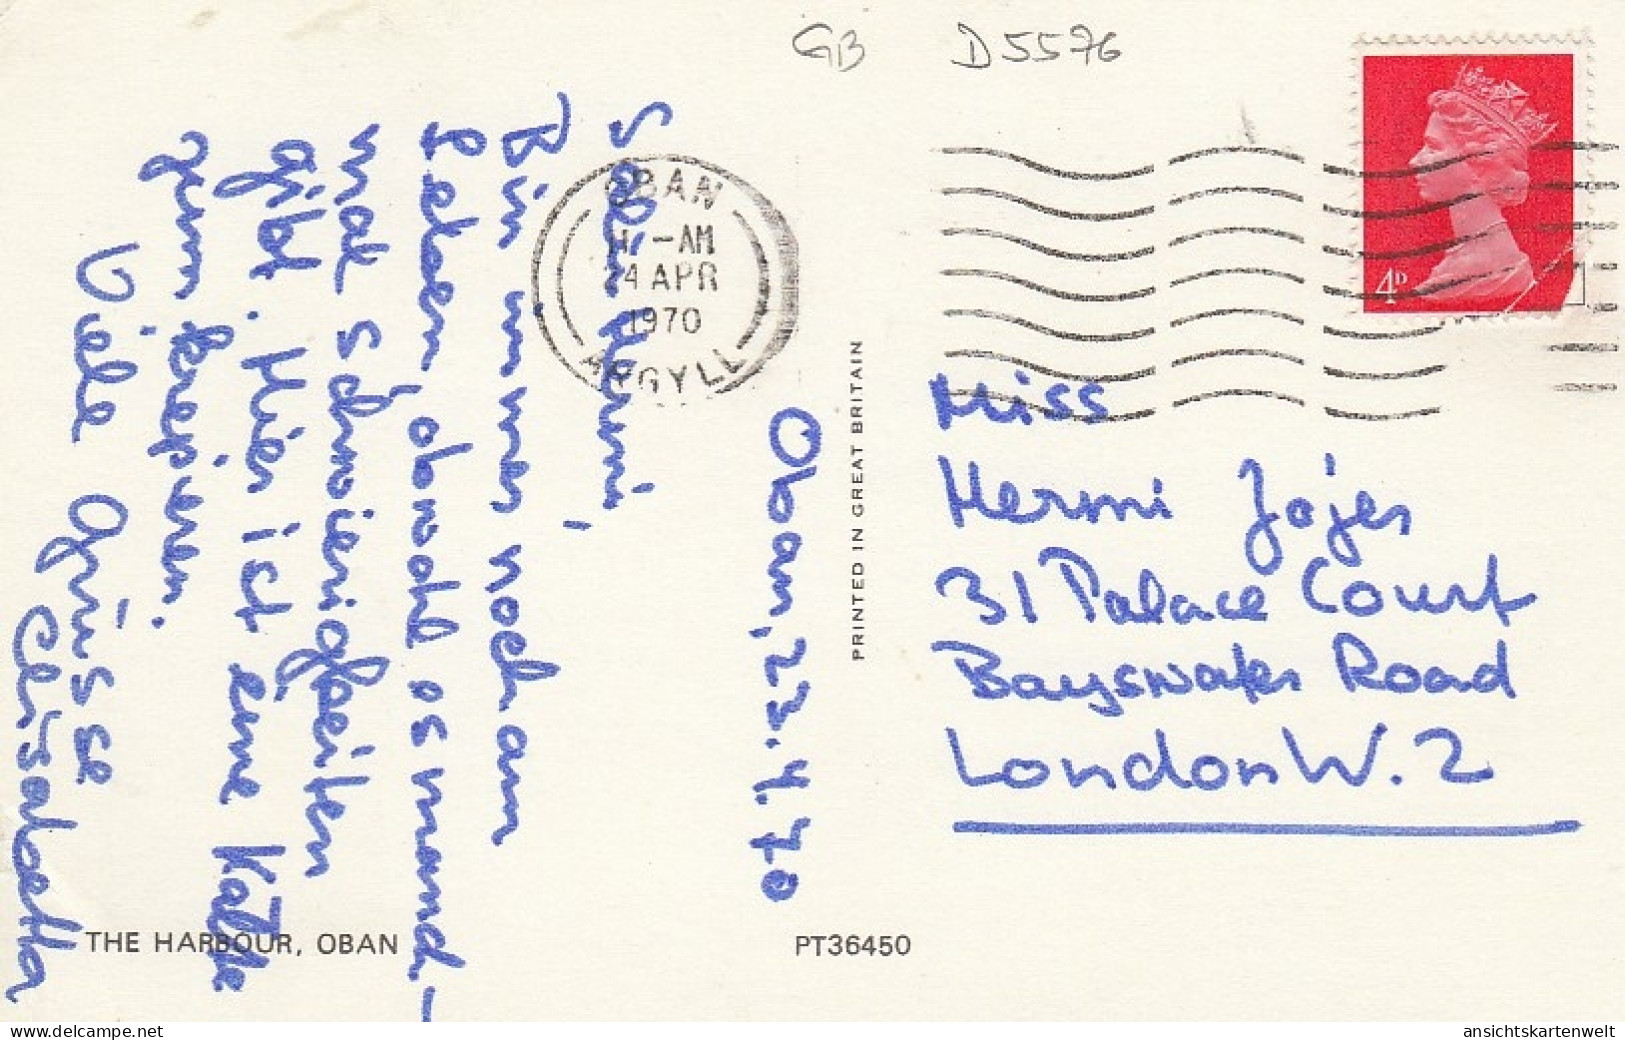 GB D5576
OBAN
11 -AM
24 APR
1970
ARGYLL
4D
Oban, 23.4.70
Bin immer noch am
Leben, obwohl es manch-
mal Schwierigkeiten
gibt. Hier ist eine Katze
zum
Viele Grüsse
PRINTED IN GREAT BRITAIN
Miss
Hermi
31 Palace Court
Bayswater Road
London W.2
THE HARBOUR, OBAN
PT36450
delcampe.net
ansichtskartenwelt